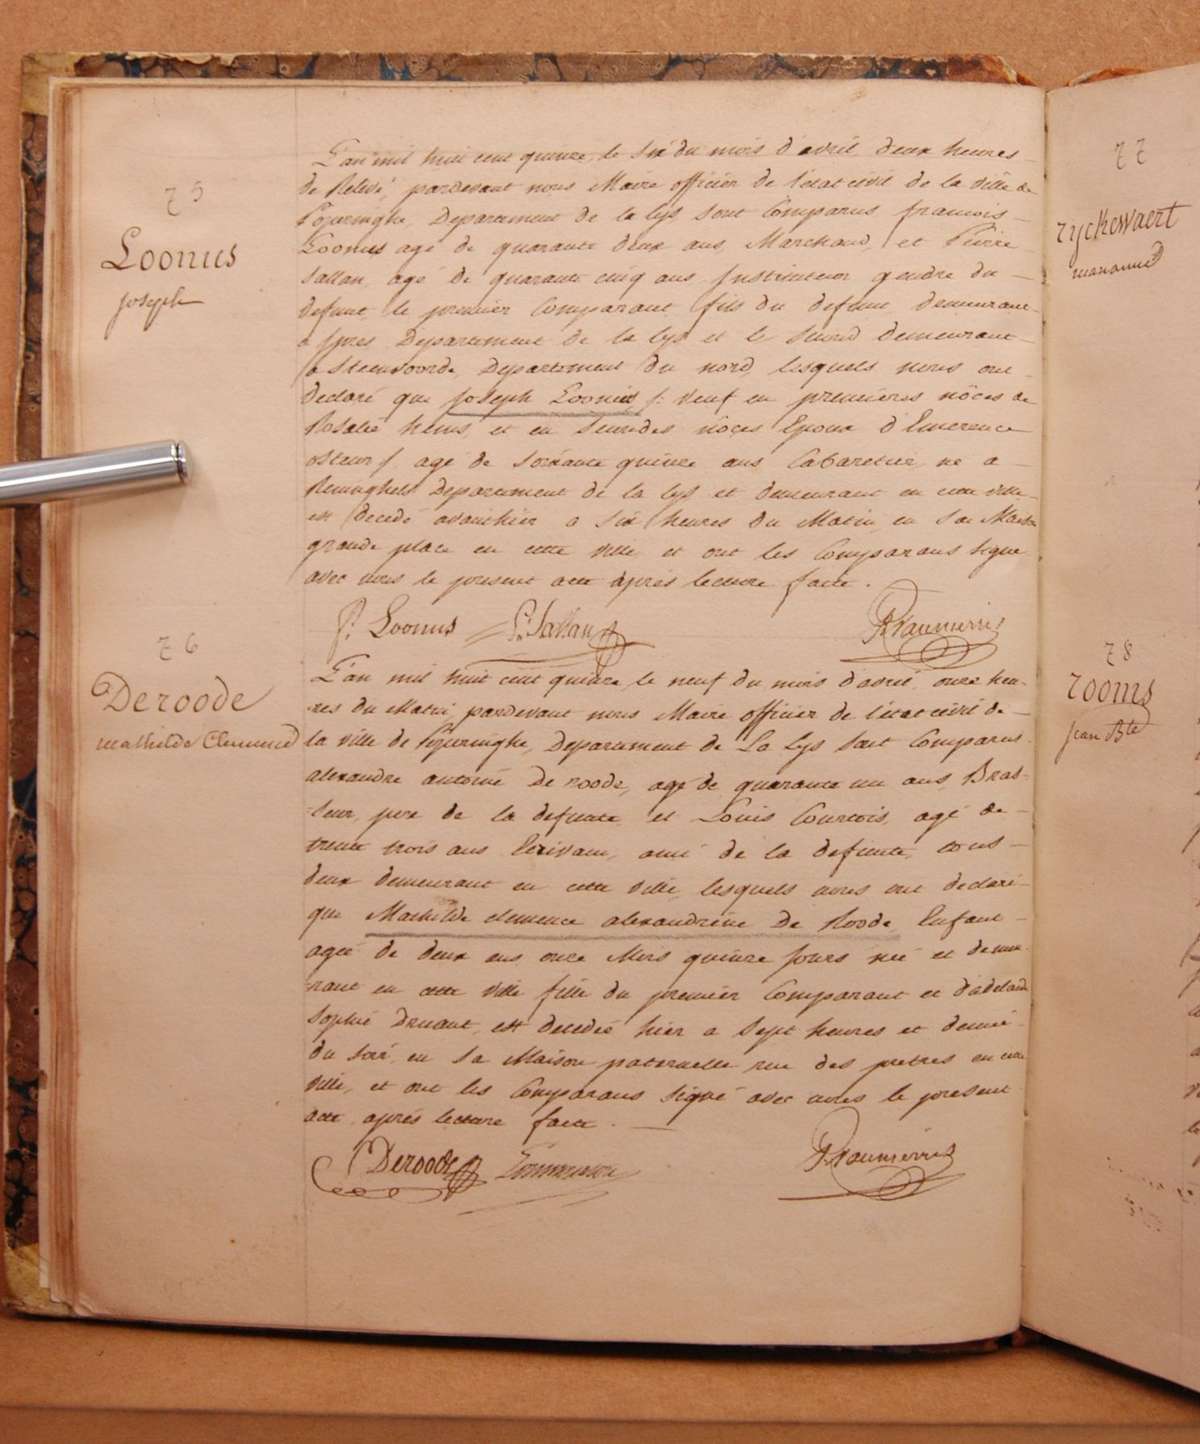 75
Loonius
joseph
L'an mil huit cent quinze, le six du mois d'avril, deux heures
de Relevé pardevant nous Maire officier de l'état civil de la ville de
Poperinghe, Departement de la lys sont Comparus francois
Loonius agé de quarante deux ans, Marchand, et Pierre
Sallan, agé de quarante cinq ans Instituteur gendre du
defunt le premier Comparant fils du defunt, demeurant
a ypres Departement de la lys et le second demeurant
a Steenvoorde, Departement du nord, lesquels nous ont
declaré que joseph Loonius /: veuf en premières nôces de
Rosalie hems, et en secondes nôces Epoux d'Emerence
osteur / agé de soixante quinze ans Cabaretier, né a
Reninghelst Departement de la lys et demeurant en cette ville
est decedé avanthier a six heures du Matin en sa Maison
grande place en cette ville et ont les Comparans signé
avec nous le present acte après lecture faite.
f. Loonius P. Sallan
76
Deroode
mathilde Clemence
L'an mil huit cent quinze, le neuf du mois d'avril, onze heu-
res du Matin, pardevant nous Maire officier de l'état civil de
la ville de Poperinghe, Departement de La Lys sont Comparus
alexandre antoine De roode, agé de quarante un ans, Bras-
seur, pere de la defunte et Louis Courtois, agé de
trente trois ans Ecrivain, ami de la defunte, tous
deux demeurant en cette ville, lesquels nous ont declaré
que Mathilde clemence alexandrine De Roode, Enfant
ageé de deux ans onze Mois quinze jours née et demeu-
rant en cette ville fille du premier Comparant et d'adelaide
Sophie Druant, est decedée hier a sept heures et demie
du soir, en sa Maison paternelle rue des pretres en cette
ville, et ont les Comparans signé avec nous le present
acte après lecture faite.
Deroode
77
ryckewaert
marianne
78
rooms
jean Bte